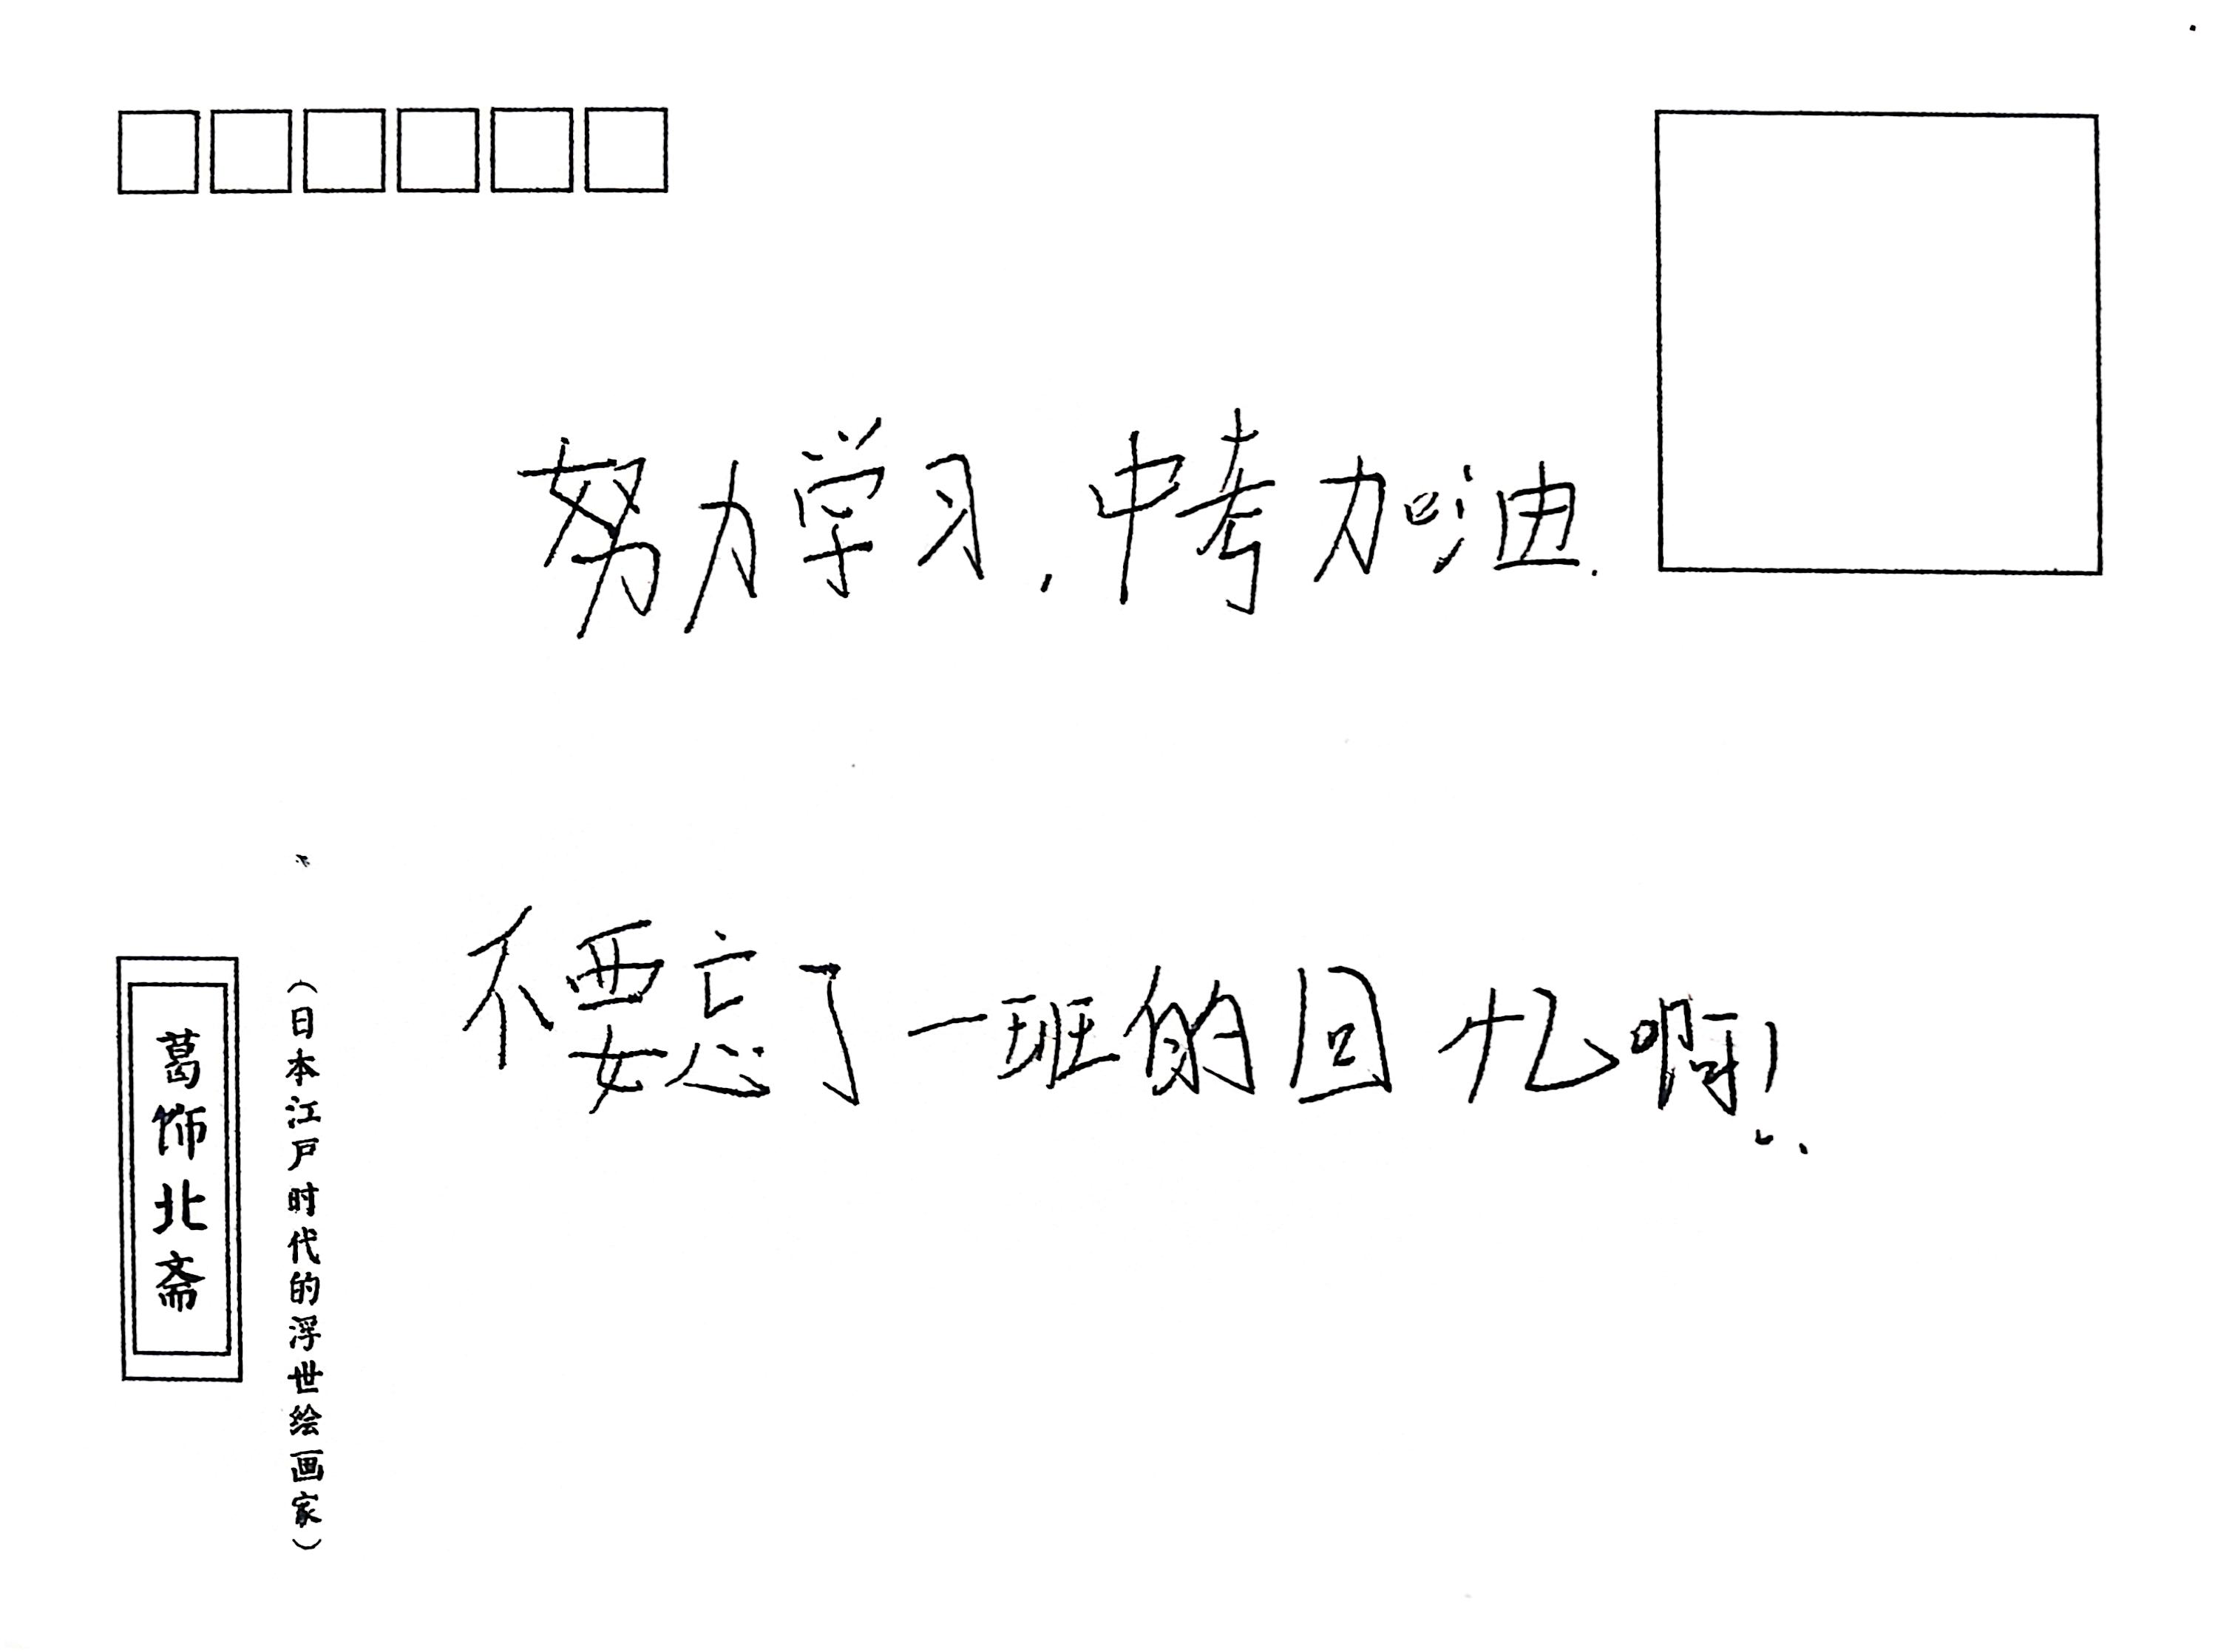 努力学习,中考加油.
不要忘了一班的回忆啊!
葛饰北斋
(日本江户时代的浮世绘画家)